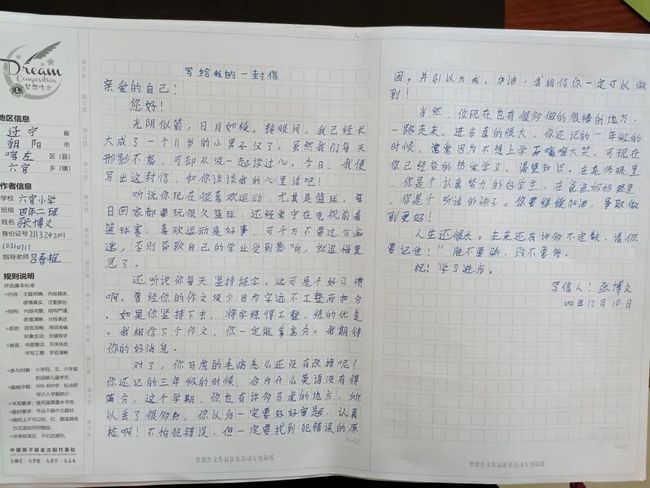 Dream
Composition
梦想作文
地区信息
辽宁 省
朝阳 市
喀左 区(县)
六官 乡(镇)
作者信息
学校 六官小学
班级 四年二班
姓名 张博文
身份证号
指导老师
规则说明
评选基本标准
中国狮子联会沈阳代表处
写给我的一封信
亲爱的自己:
您好!
光阴似箭,日月如梭,转眼间,我已经长
大成了一个11岁的小男子汉了。虽然我们每天
形影不离,可却从没一起谈过心,今日,我便
写出这封信,和你谈谈我的心里话吧!
听说你现在很喜欢运动,尤其是篮球,每
日回家都要玩很久篮球,还经常守在电视前看
篮球赛,喜欢运动是好事,可千万不要过分痴
迷,否则导致自己的学业受到影响,就追悔莫
急了。
还听说你每天坚持练字,这可是个好习惯
啊。曾经你的作文没少因为字迹不工整而扣分,
如果你坚持下去,将字练得工整,练的优美。
我相信下个作文,你一定能拿高分。我期待
你的好消息。
对了,你马虎的毛病怎么还没有改掉呢!
你还记的三年级的时候,你为什么英语没有得
满分,这个学期,你也有许多马虎的地方,所
以丢了很多分,你以后一定要好好审题,认真
检啊!不怕犯错误,但一定要找到犯错误的原
因。并引以为戒,加油,我相信你一定可以做
到!
当然,你现在也有很多做的很棒的地方,
一路走来,进步真的很大,你还记的一年级的
时候,常常因为不想上学而嚎啕大哭,可现在
你已经变的热爱学习,渴望知识。在老师眼里
你是个认真努力的好学生,在爸爸妈妈眼里
你是个听话的孩子。你要继续加油,争取做
到更好!
人生还很长。未来还有许多不定数,请你
要记住:“胜不要骄,败不要馁。
祝:学习进步。
写信人:张博文
2021年12月10日
梦想作文作品征集活动专用稿纸
梦想作文作品征集活动专用稿纸